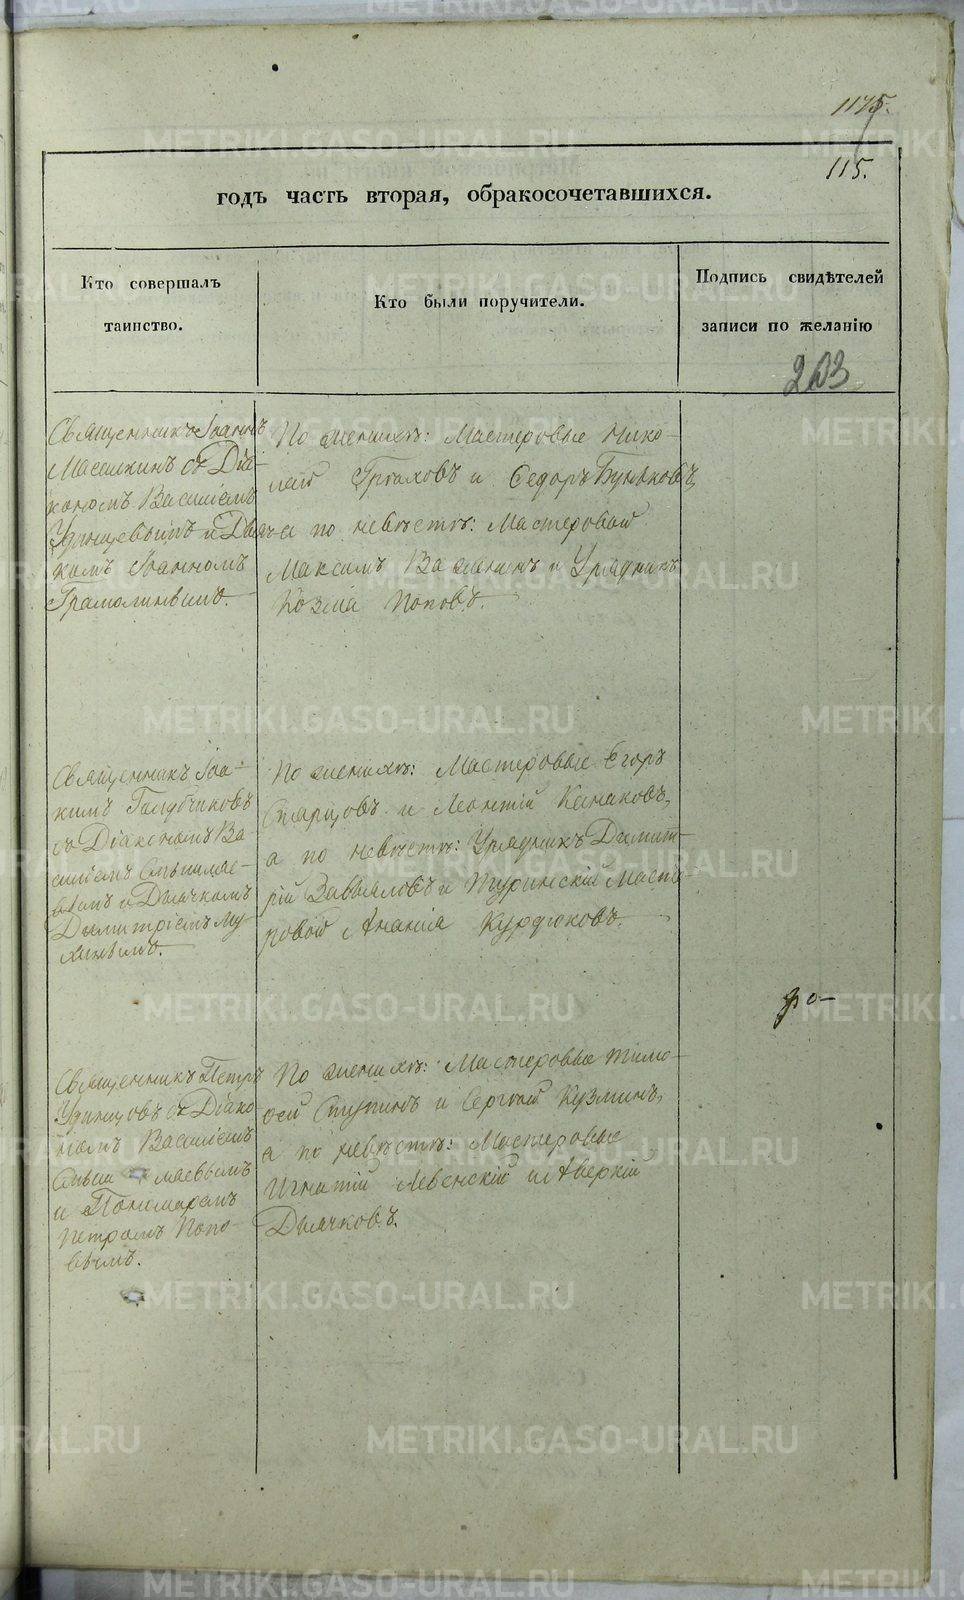 1175.
115.
годъ часть вторая, обракосочетавшихся.
Кто совершалъ
таинство.
Кто были поручители.
Подпись свидѣтелей
записи по желанію
203
Священникъ Іоаннъ
Масалкинъ съ Діа-
кономъ Василіемъ
Удинцевымъ и Дьяч-
комъ Іоанномъ
По женихѣ: Мастеровые Нико-
лай Грѣховъ и Ѳедоръ Буньковъ,
а по невѣстѣ: Мастеровой
Максимъ Важенинъ и Урядникъ
Козма Поповъ.
Священникъ Іоа-
кимъ Голубчиковъ
съ Діакономъ Ва-
силіемъ
и Дьячкомъ
Димитріемъ Му-
хинымъ.
По женихѣ: Мастеровые Егоръ
Старцовъ и Леонтій Канаковъ,
а по невѣстѣ: Урядникъ Димит-
рій Завьяловъ и Туринскій Масте-
ровой Ананія Курдюковъ.
Священникъ Петръ
Удинцовъ съ Діако-
номъ Василіемъ
и Пономаремъ
Петромъ Попо-
вымъ.
По женихѣ: Мастеровые Тимо-
ѳей Ступинъ и Сергѣй Кузминъ,
а по невѣстѣ: Мастеровые
Игнатій Левенскій и Аверкій
Дьячковъ.
METRIKI.GASO-URAL.RU